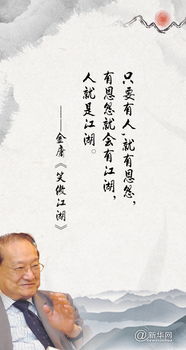 只要有人，就有恩怨，
有恩怨就会有江湖，
人就是江湖。
——金庸《笑傲江湖》
@新华网